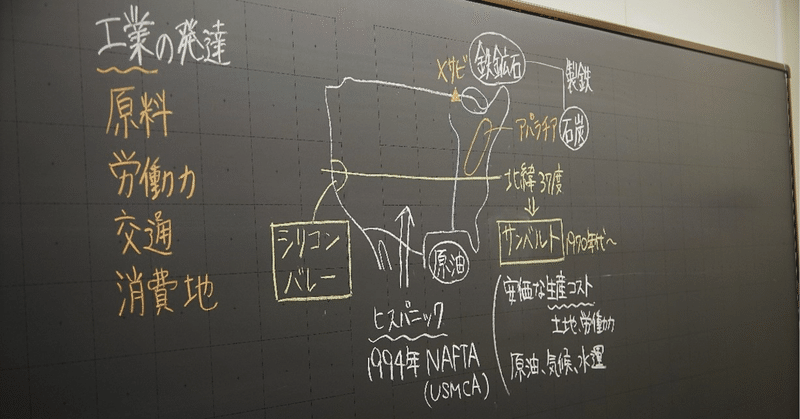 工業の発達
原料
労働力
交通
消費地
メサビ
鉄鉱石
製鉄
アパラチア
石炭
北緯37度
サンベルト
1970年代~
安価な生産コスト
土地、労働力
原油、気候、水運
シリコン
バレー
原油
ヒスパニック
1994年 NAFTA
(USMCA)